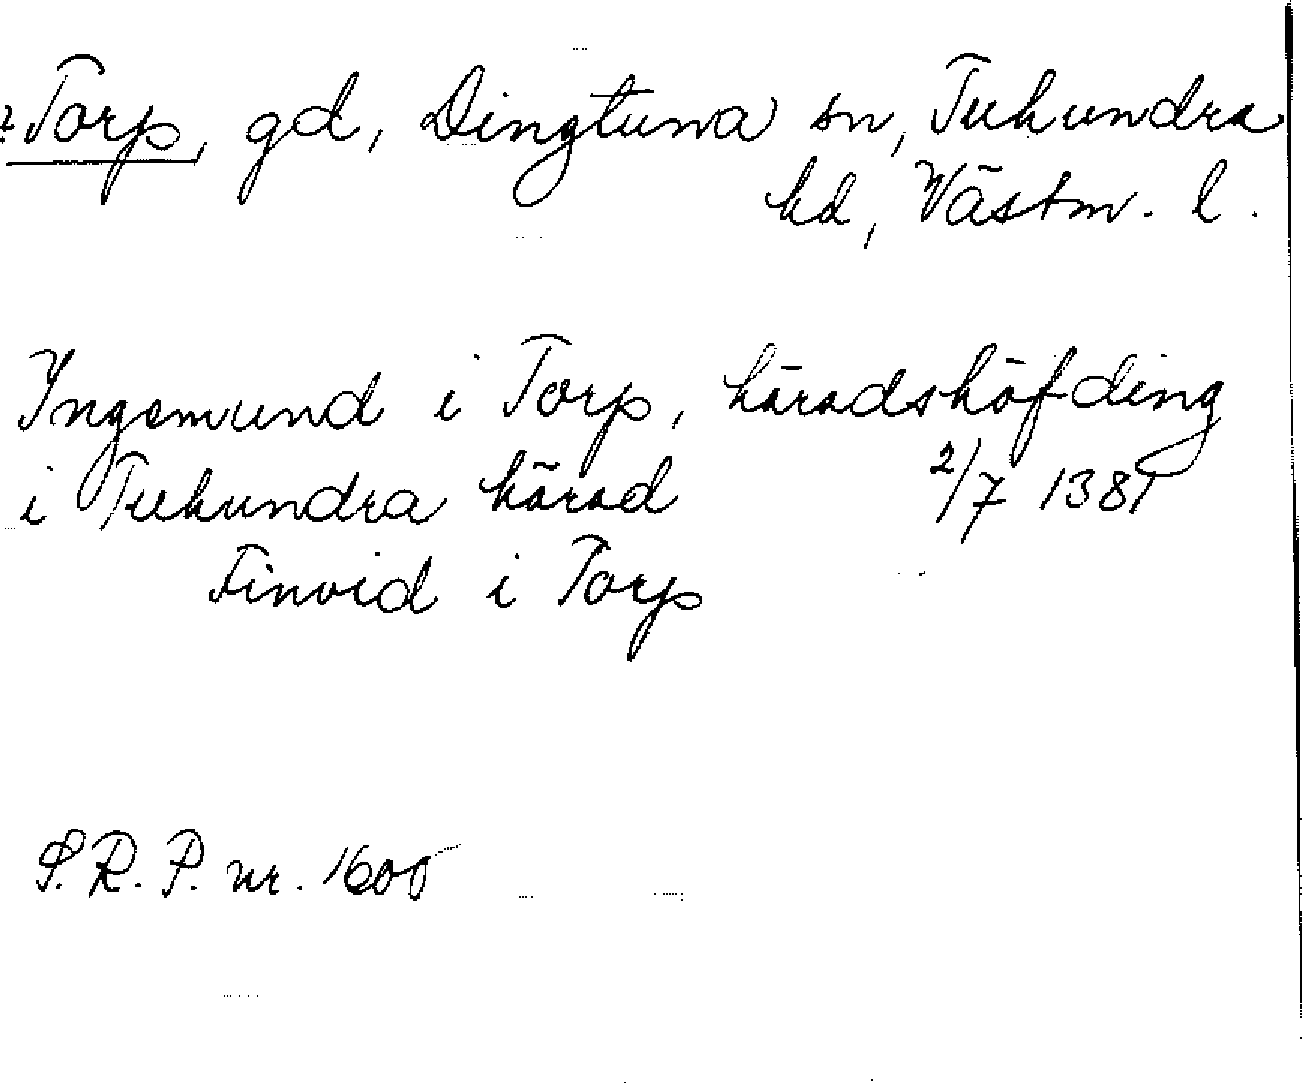 ? Torp, gd, Dingtuna sn, Tuhundra
hd, Västm. l.
Ingemund i Torp, häradshöfding
i Tuhundra härad 2/7 1381
Finvid i Torp
S. R. P. nr. 1600